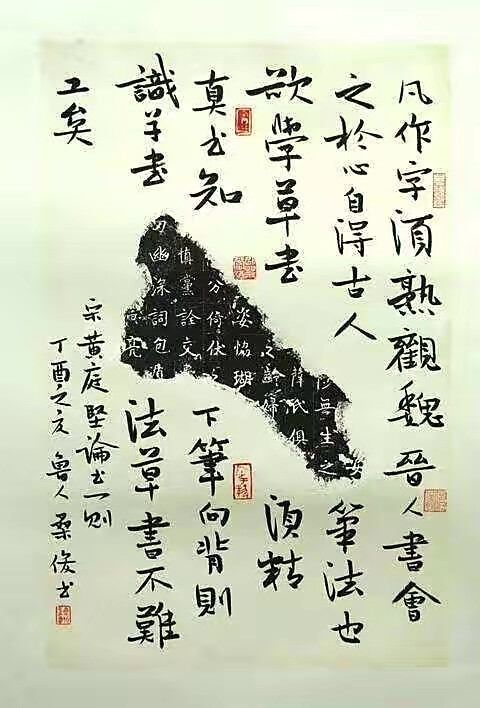 凡作字須熟觀魏晉人書會
之於心自得古人筆法也
欲學草書須精
真書知下筆向背則
識草書法草書不難
工矣
宋黃庭堅論書一則
丁酉之夏魯人桑俊書
無生之
氏俱
之齡歸
姿恪瑚
分倚伏
慎黨詮文
幽深詞包
亮